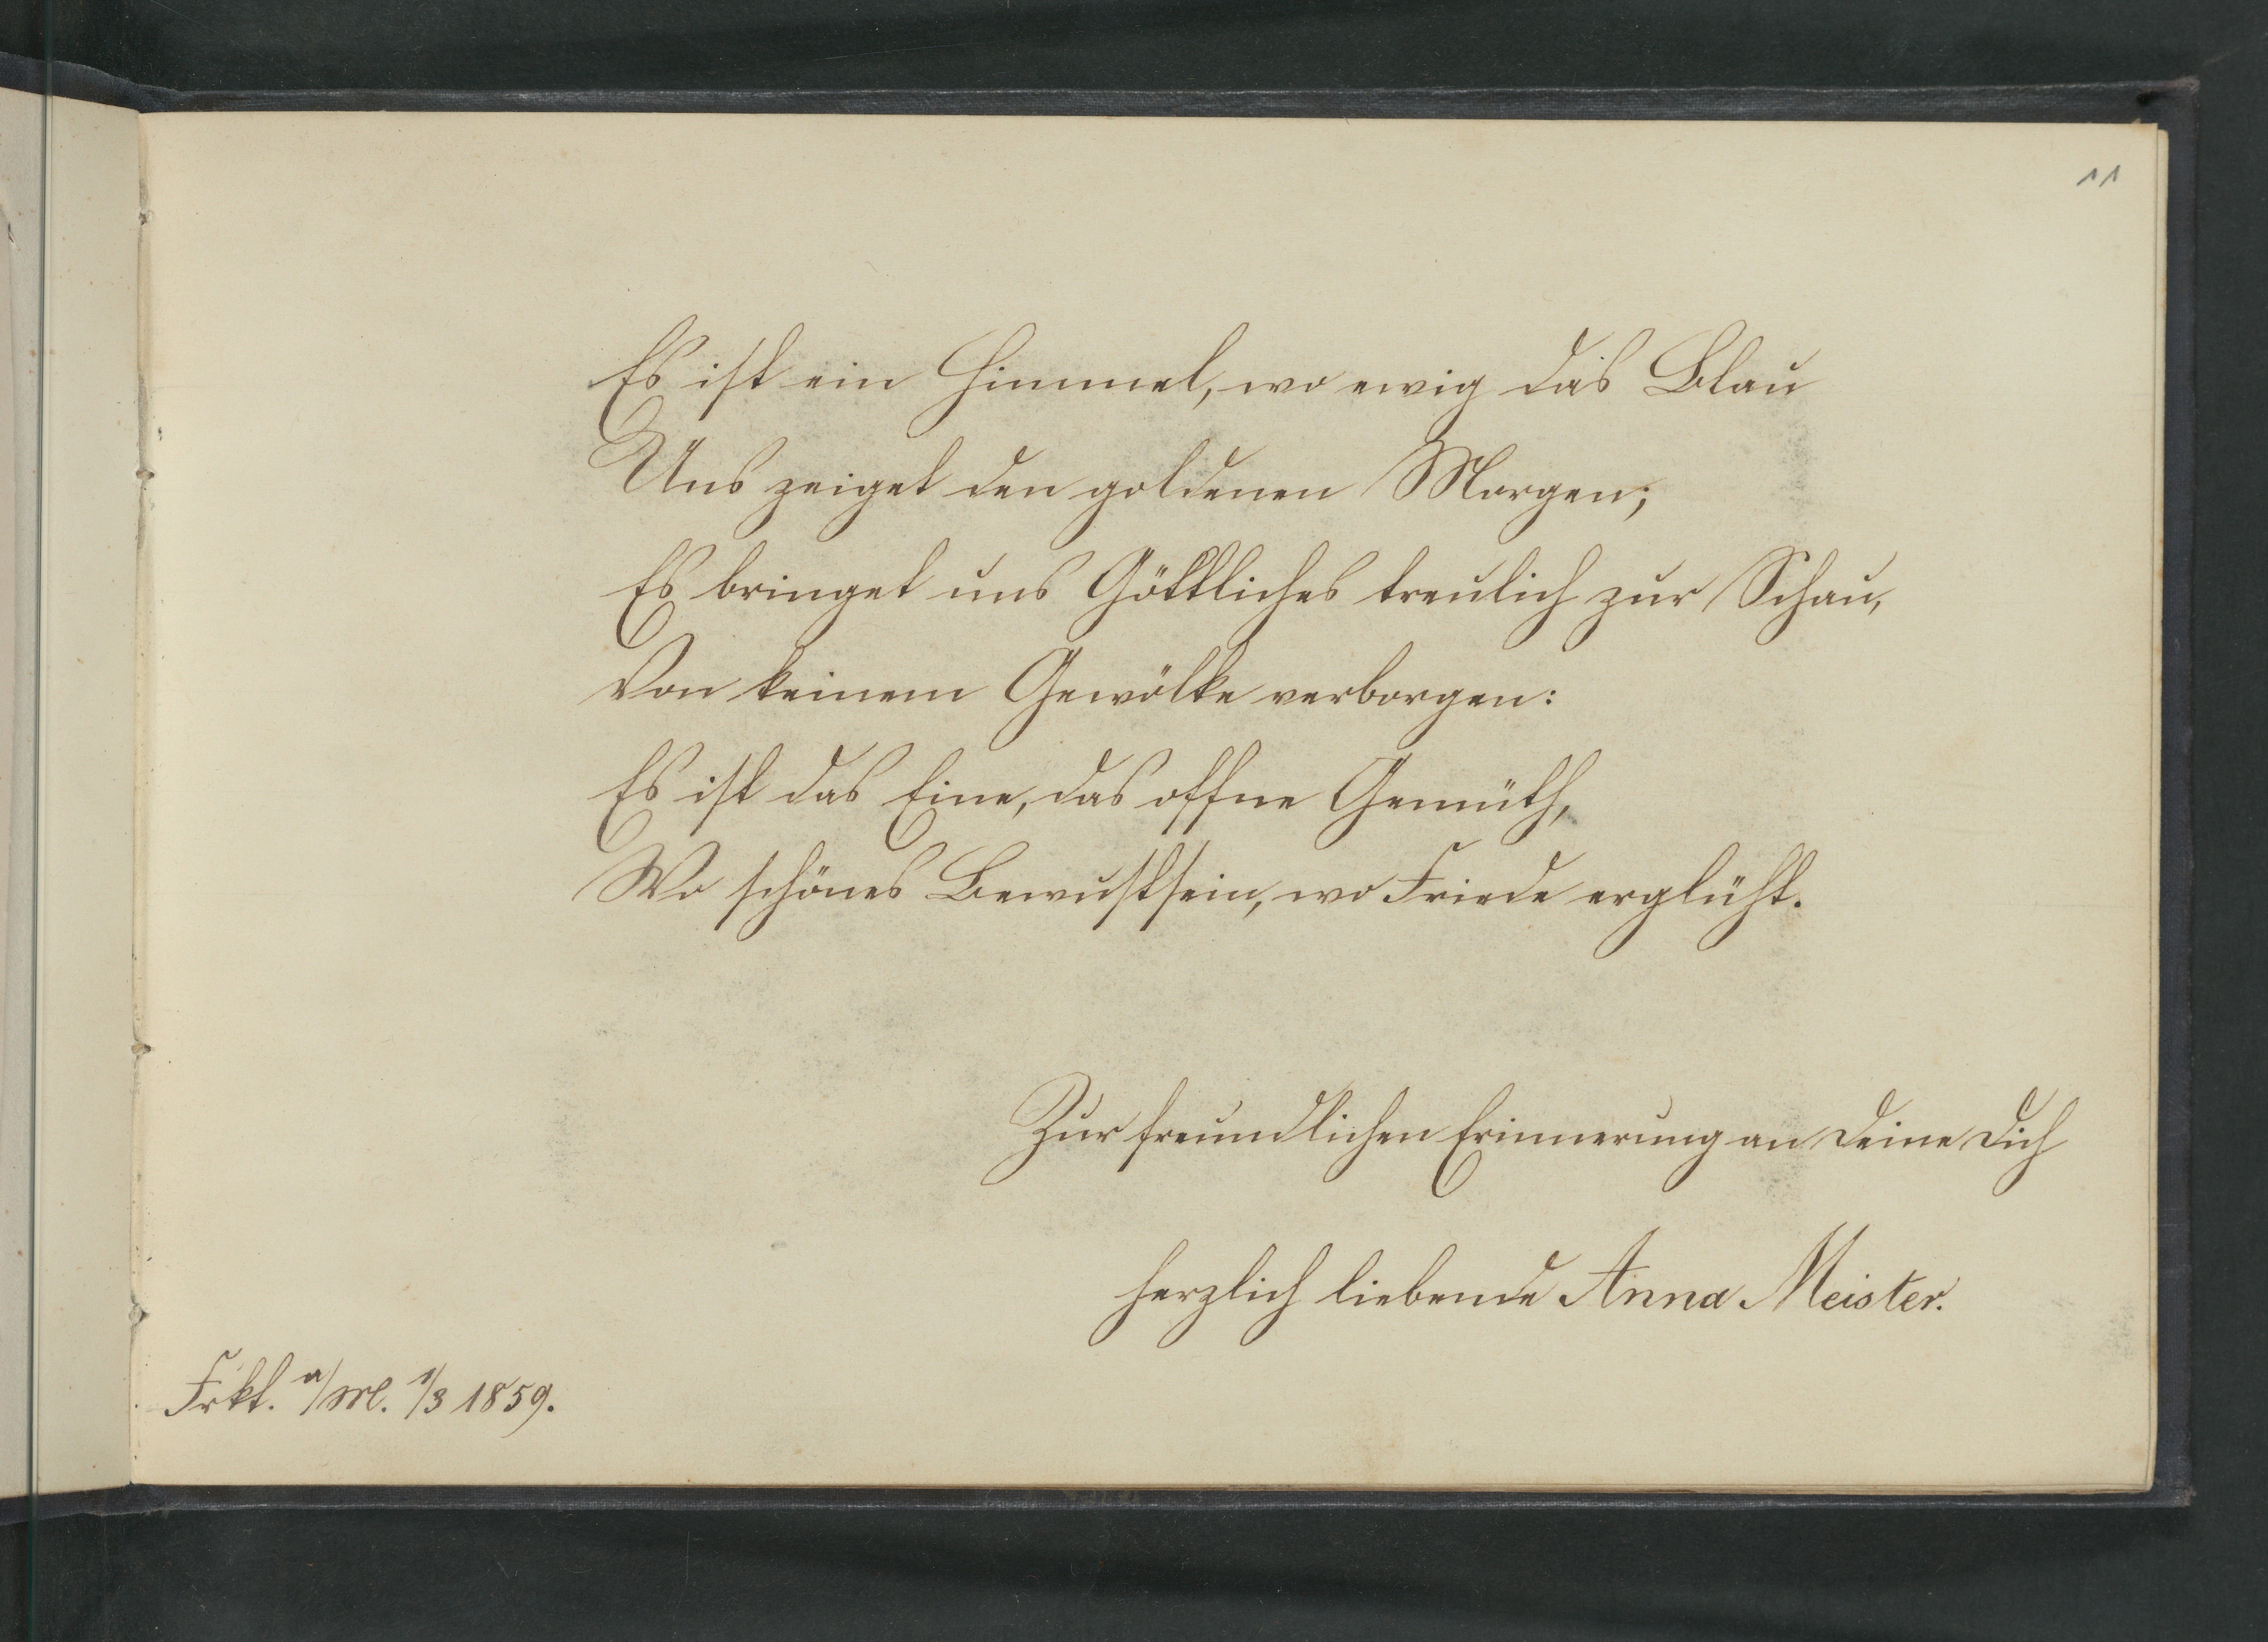 11
Es ist ein Himmel, wo ewig das Blau
Uns zeiget den goldenen Morgen;
Es bringet uns Göttliches treulich zur Schau,
Von keinem Gewölke verborgen:
Es ist das Eine, das offne Gemüth,
Wo schönes Bewustsein, wo Friede erglüht.
Zur freundlichen Erinnerung an Deine Dich
herzlich liebende Anna Meister.
Frkt. a/M. 1/3 1859.